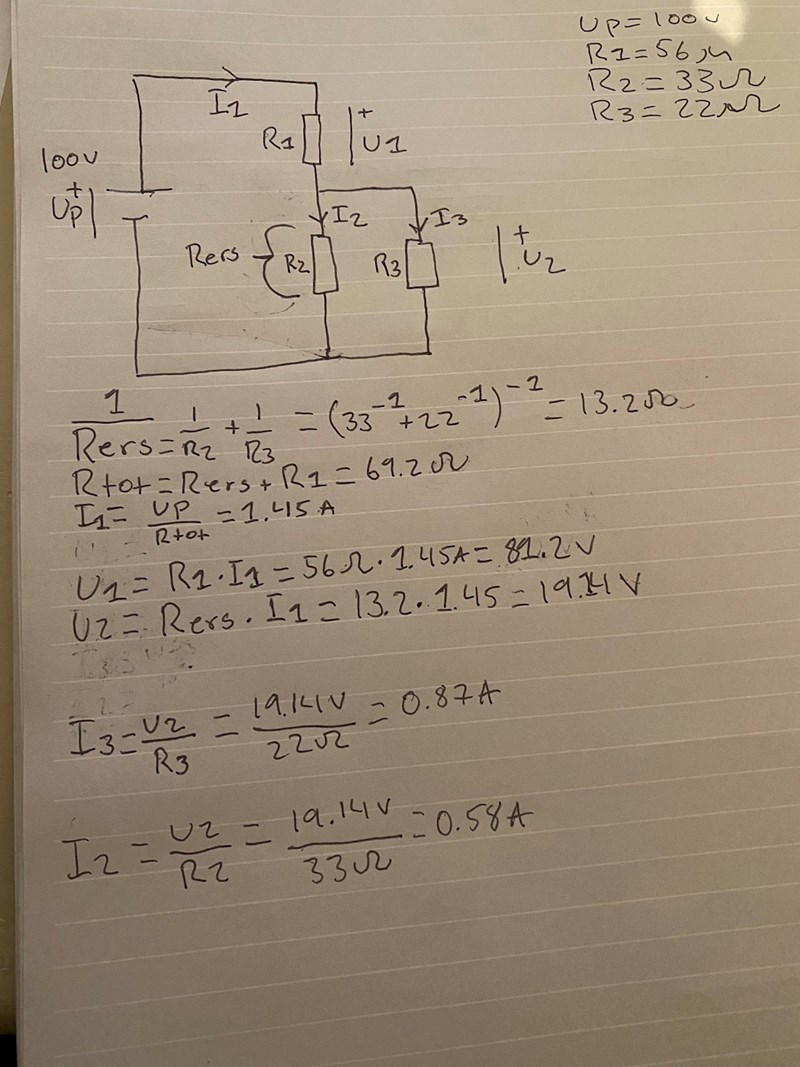 Up=100V
R1=56Ω
R2=33Ω
R3=22Ω
I1
R1
+
U1
100V
+
Up
I2
I3
Rers
R2
R3
+
U2
1/Rers = 1/R2 + 1/R3 = (33^-1 + 22^-1)^-1 = 13.2Ω
Rtot = Rers + R1 = 69.2Ω
I1 = UP/Rtot = 1.45A
U1 = R1 · I1 = 56Ω · 1.45A = 81.2V
U2 = Rers · I1 = 13.2 · 1.45 = 19.14V
I3 = U2/R3 = 19.14V/22Ω = 0.87A
I2 = U2/R2 = 19.14V/33Ω = 0.58A